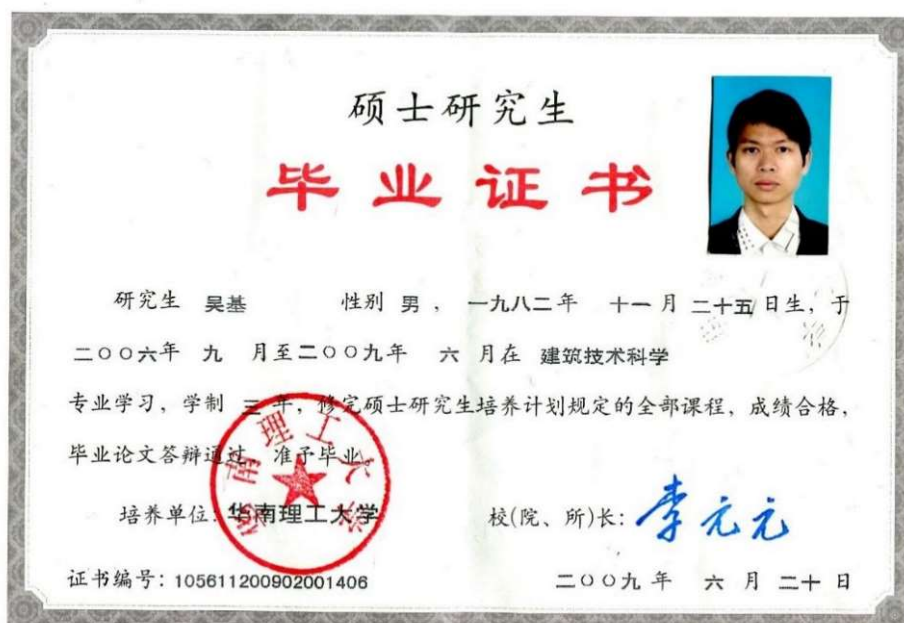 硕士研究生
毕业证书
研究生 吴基 性别 男 ，一九八二年 十一月 二十五日生，于
二〇〇六年 九 月至二〇〇九年 六 月在 建筑技术科学
专业学习，学制 三 年，修完硕士研究生培养计划规定的全部课程，成绩合格，
毕业论文答辩通过，准予毕业。
华南理工大学
培养单位：华南理工大学 校(院、所)长：李元元
证书编号：105611200902001406 二〇〇九年 六 月 二十日